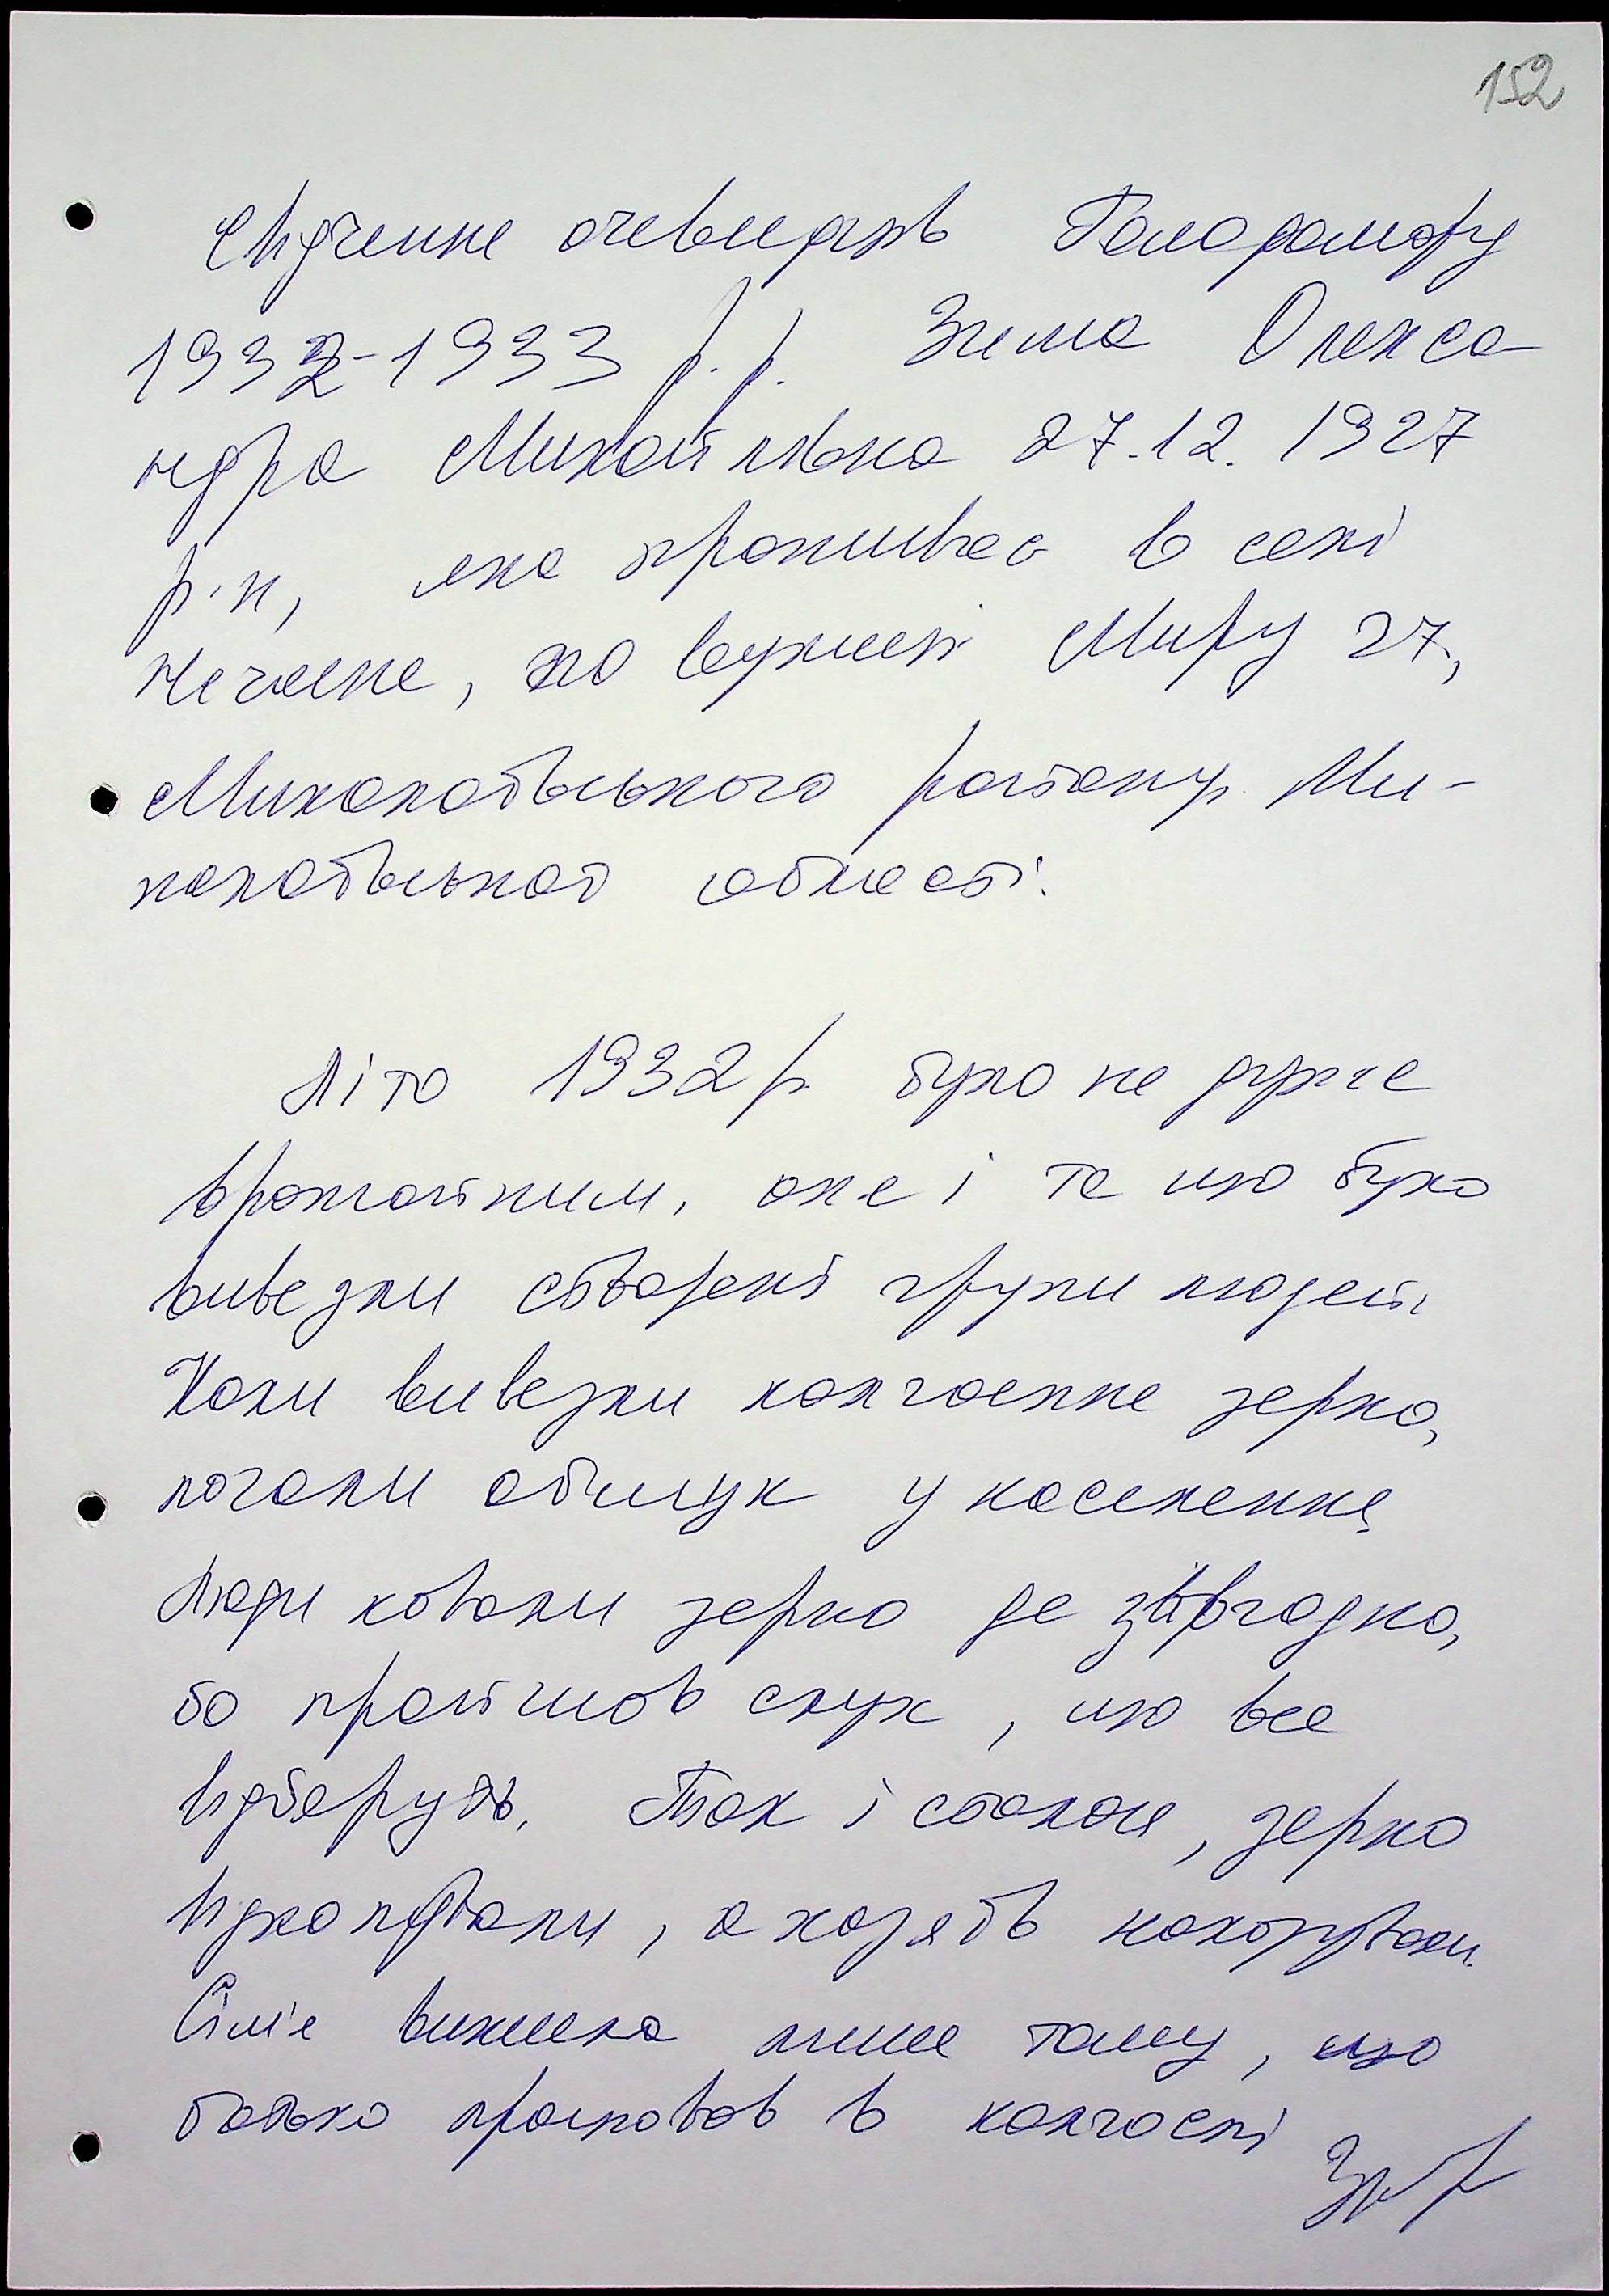 152
Свідчення очевидців Голодомору
1932-1933 р.р. Зима Олекса-
ндра Михайлівна 27.12.1927
р.н, яка проживає в селі
Нечаяне, по вулиці Миру 27,
Миколаївського району Ми-
колаївської області.
Літо 1932р. було не дуже
врожайним, але і те що було
вивезли створені групи людей.
Коли вивезли колгоспне зерно,
почали обшук у населення
Люди ховали зерно де завгодно,
бо пройшов слух, що все
відберуть. Так і сталося, зерно
відкопували, а хозяїв наказували.
Сім'я вижила лише тому, що
батько працював в колгоспі